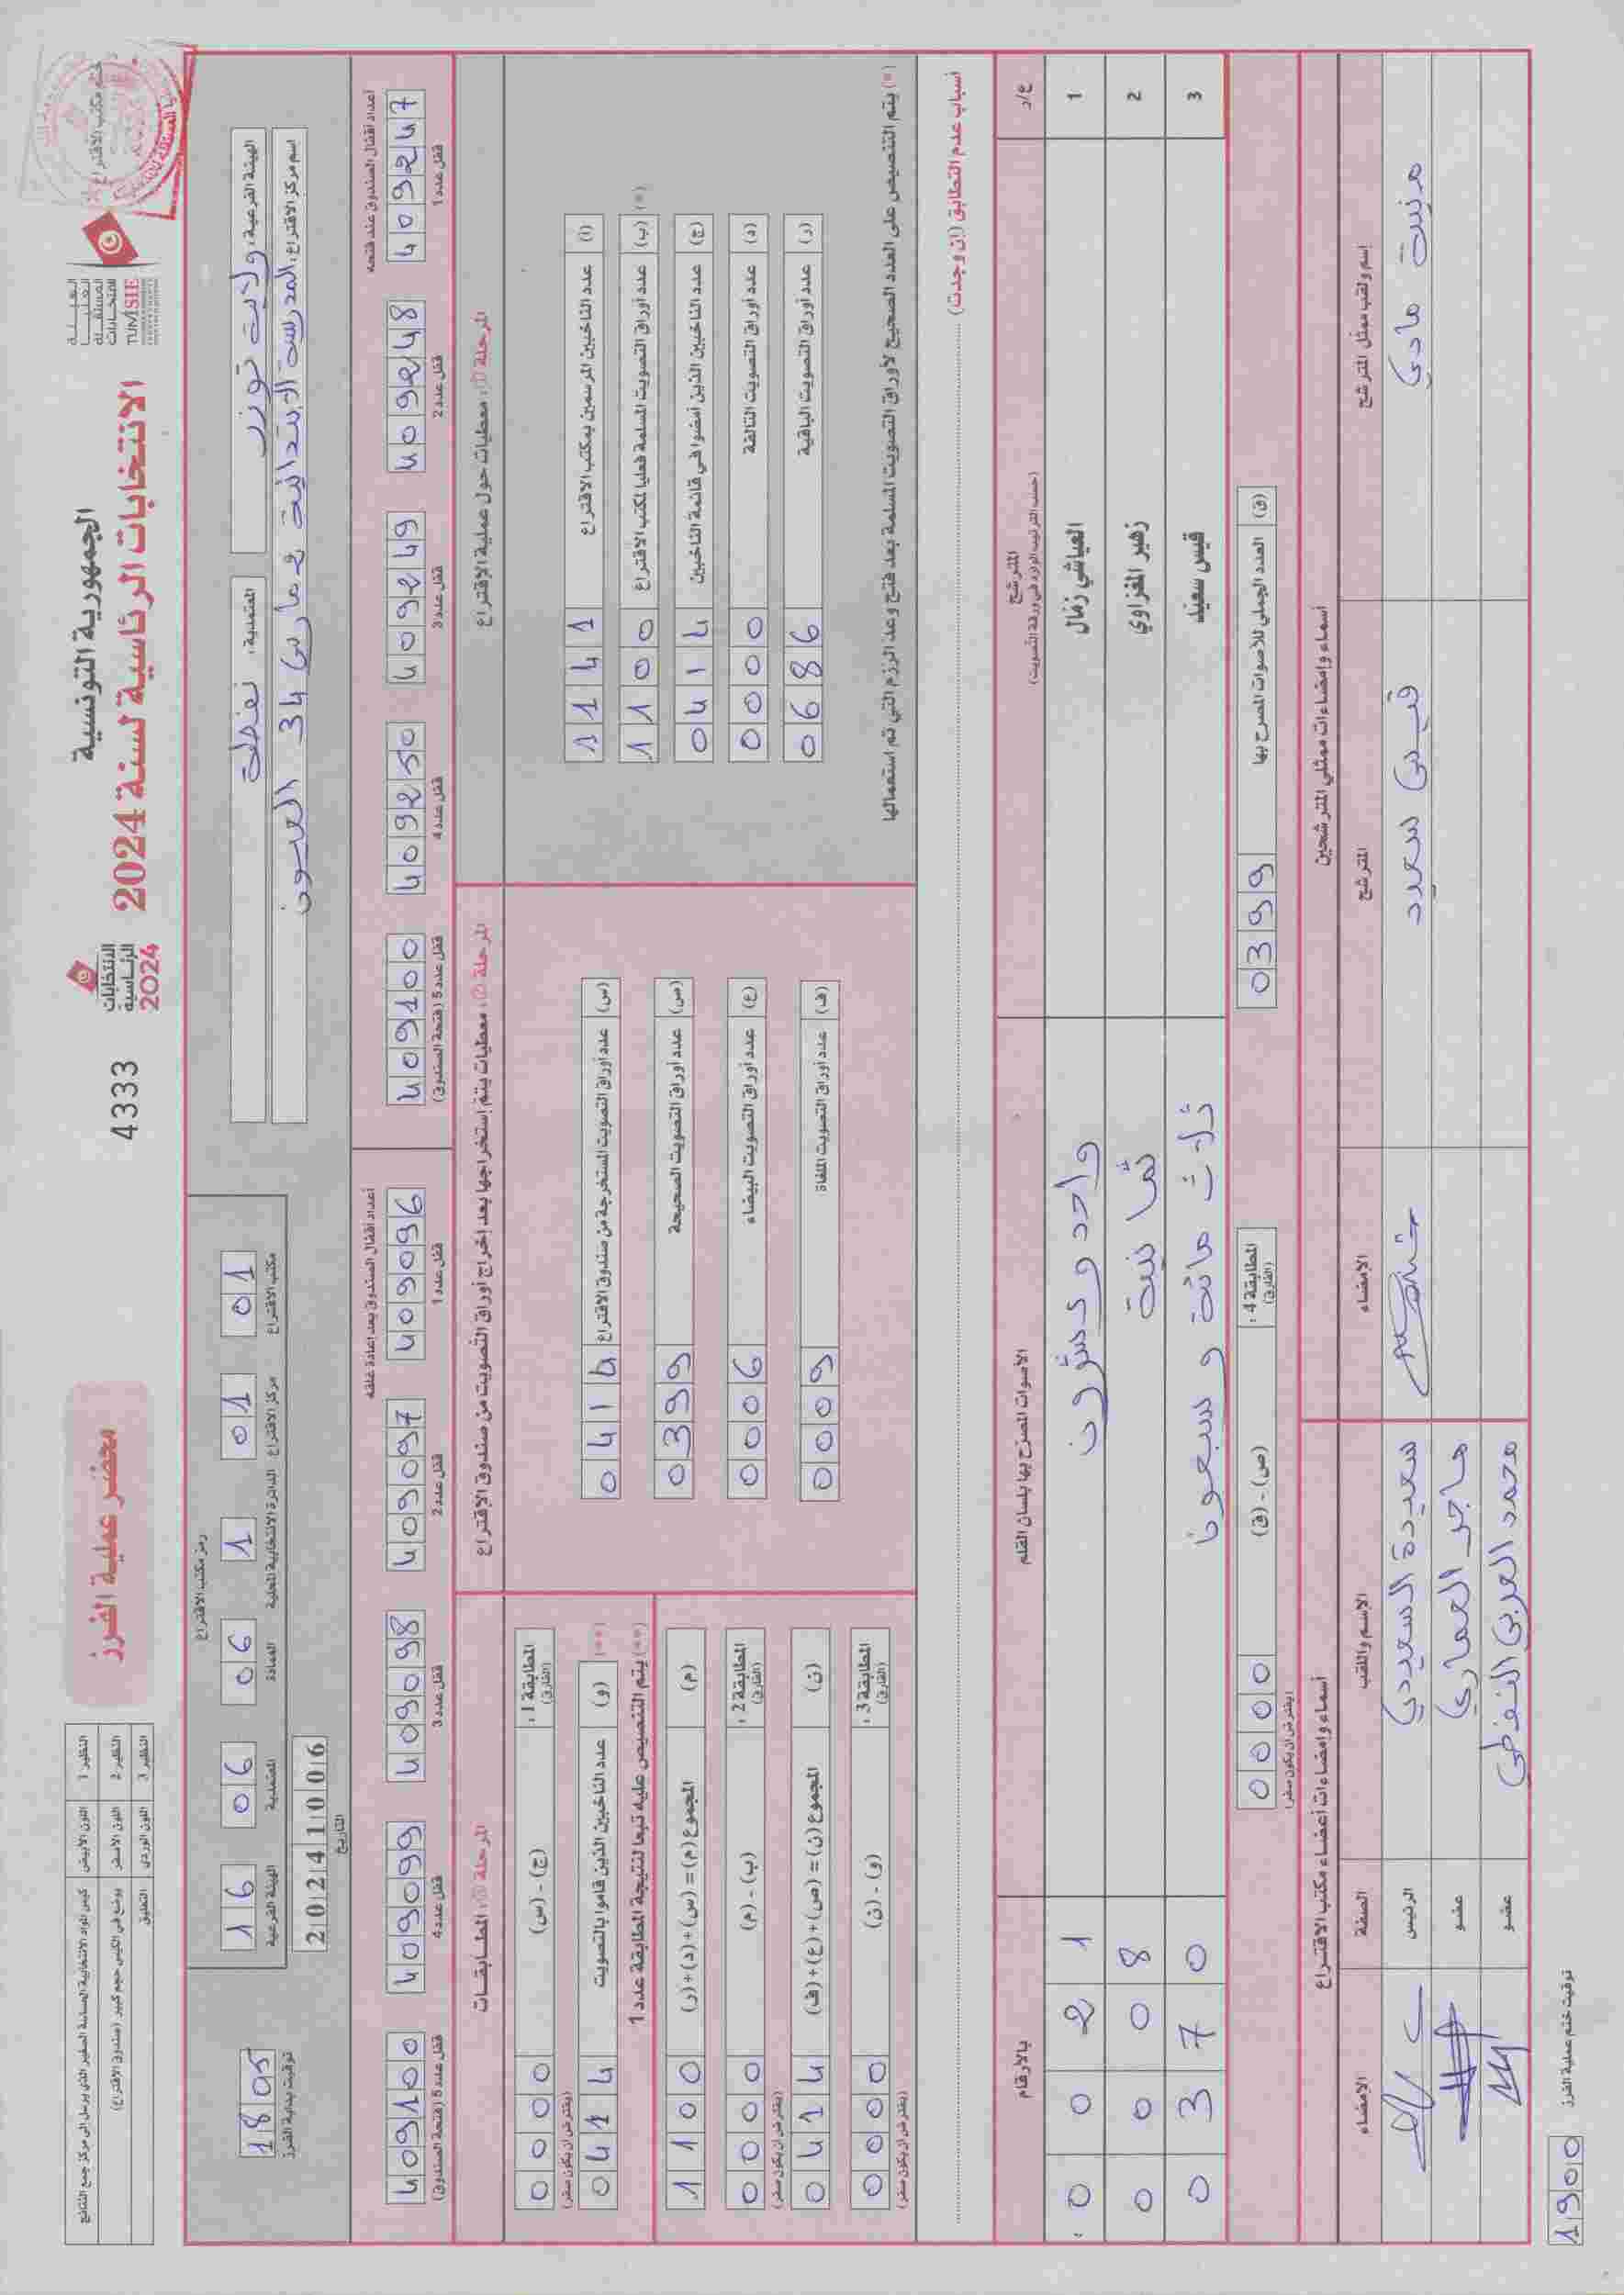 الجمهورية التونسية
الانتخابات الرئاسية لسنة 2024
الهيئة
العليا
المستقلة
للانتخابات
TUNISIE
الانتخابات
الرئاسية
2024
4333
محضر عملية الفرز
النظير 1 اللون الأبيض
النظير 2 اللون الأصفر يوضع في الكيس حجم كبير (صندوق الاقتراع)
النظير 3 اللون الوردي التعليق
ختم مكتب الاقتراع
الهيئة الفرعية: ولاية توزر
المعتمدية: نفطة
اسم مركز الاقتراع: المدرسة الابتدائية 2 مارس 34 العيون
رمز مكتب الاقتراع
16 06 06 1 01 01
الهيئة الفرعية المعتمدية العمادة الدائرة الانتخابية المحلية مركز الاقتراع مكتب الاقتراع
20241006
التاريخ
1805
توقيت بداية الفرز
أعداد أقفال الصندوق عند فتحه
409247 409248 409249 409250 409100
قفل عدد 1 قفل عدد 2 قفل عدد 3 قفل عدد 4 قفل عدد 5 (فتحة الصندوق)
أعداد أقفال الصندوق بعد إعادة غلقه
409096 409097 409098 409099 409100
قفل عدد 1 قفل عدد 2 قفل عدد 3 قفل عدد 4 قفل عدد 5 (فتحة الصندوق)
المرحلة ①: معطيات حول عملية الاقتراع
(أ) عدد الناخبين المرسمين بمكتب الاقتراع 1141
(ب) عدد أوراق التصويت المسلمة فعليا لمكتب الاقتراع 1100 (*)
(ج) عدد الناخبين الذين أمضوا في قائمة الناخبين 0414
(د) عدد أوراق التصويت التالفة 0000
(ر) عدد أوراق التصويت الباقية 0686
(*) يتم التنصيص على العدد الصحيح لأوراق التصويت المسلمة بعد فتح وعد الرزم التي تم استعمالها
المرحلة ②: معطيات يتم إستخراجها بعد إخراج أوراق التصويت من صندوق الاقتراع
(س) عدد أوراق التصويت المستخرجة من صندوق الاقتراع 0414
(ص) عدد أوراق التصويت الصحيحة 0399
(ع) عدد أوراق التصويت البيضاء 0006
(ف) عدد أوراق التصويت الملغاة 0009
المرحلة ③: المطابقات
المطابقة 1: (الفارق) (ج) - (س) 0000
(يفترض أن يكون صفر)
(و) عدد الناخبين الذين قاموا بالتصويت 0414 (**)
(**) يتم التنصيص عليه تبعا لنتيجة المطابقة عدد 1
(م) المجموع (م) = (س)+(د)+(ر) 1100
المطابقة 2: (الفارق) (ب) - (م) 0000
(يفترض أن يكون صفر)
(ن) المجموع (ن) = (ص)+(ع)+(ف) 0414
المطابقة 3: (الفارق) (و) - (ن) 0000
(يفترض أن يكون صفر)
أسباب عدم التطابق (إن وجدت):
ع/ر المترشح الأصوات المصرّح بها بلسان القلم بالأرقام
(حسب الترتيب الوارد في ورقة التصويت)
1 العياشي زمّال واحد وعشرون 0021
2 زهير المغزاوي ثمانية 0008
3 قيس سعيّد ثلاث مائة وسبعون 0370
(ق) العدد الجملي للأصوات المصرح بها 0399
المطابقة 4: (الفارق) (ص) - (ق) 0000
(يفترض أن يكون صفر)
أسماء وإمضاءات ممثلي المترشحين
اسم ولقب ممثل المترشح المترشح الإمضاء
قيس سعيد
أسماء وإمضاءات أعضاء مكتب الاقتراع
الاسم واللقب الصفة الإمضاء
سعيدة السعيدي الرئيس
هاجر العماري عضو
محمد العربي النفطي عضو
توقيت ختم عملية الفرز 1900